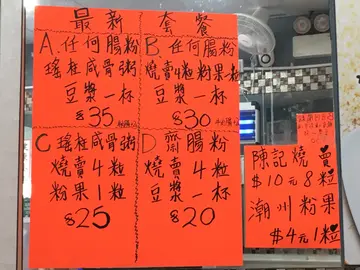 最新套餐
A.任何腸粉
瑤柱咸骨粥
豆漿一杯
$35
B 任何腸粉
燒賣4粒粉果1粒
豆漿一杯
$30
C 瑤柱咸骨粥
燒賣4粒
粉果1粒
$25
D 齋腸粉
燒賣4粒
豆漿一杯
$20
陳記燒賣
$10元8粒
潮州粉果
$4元1粒